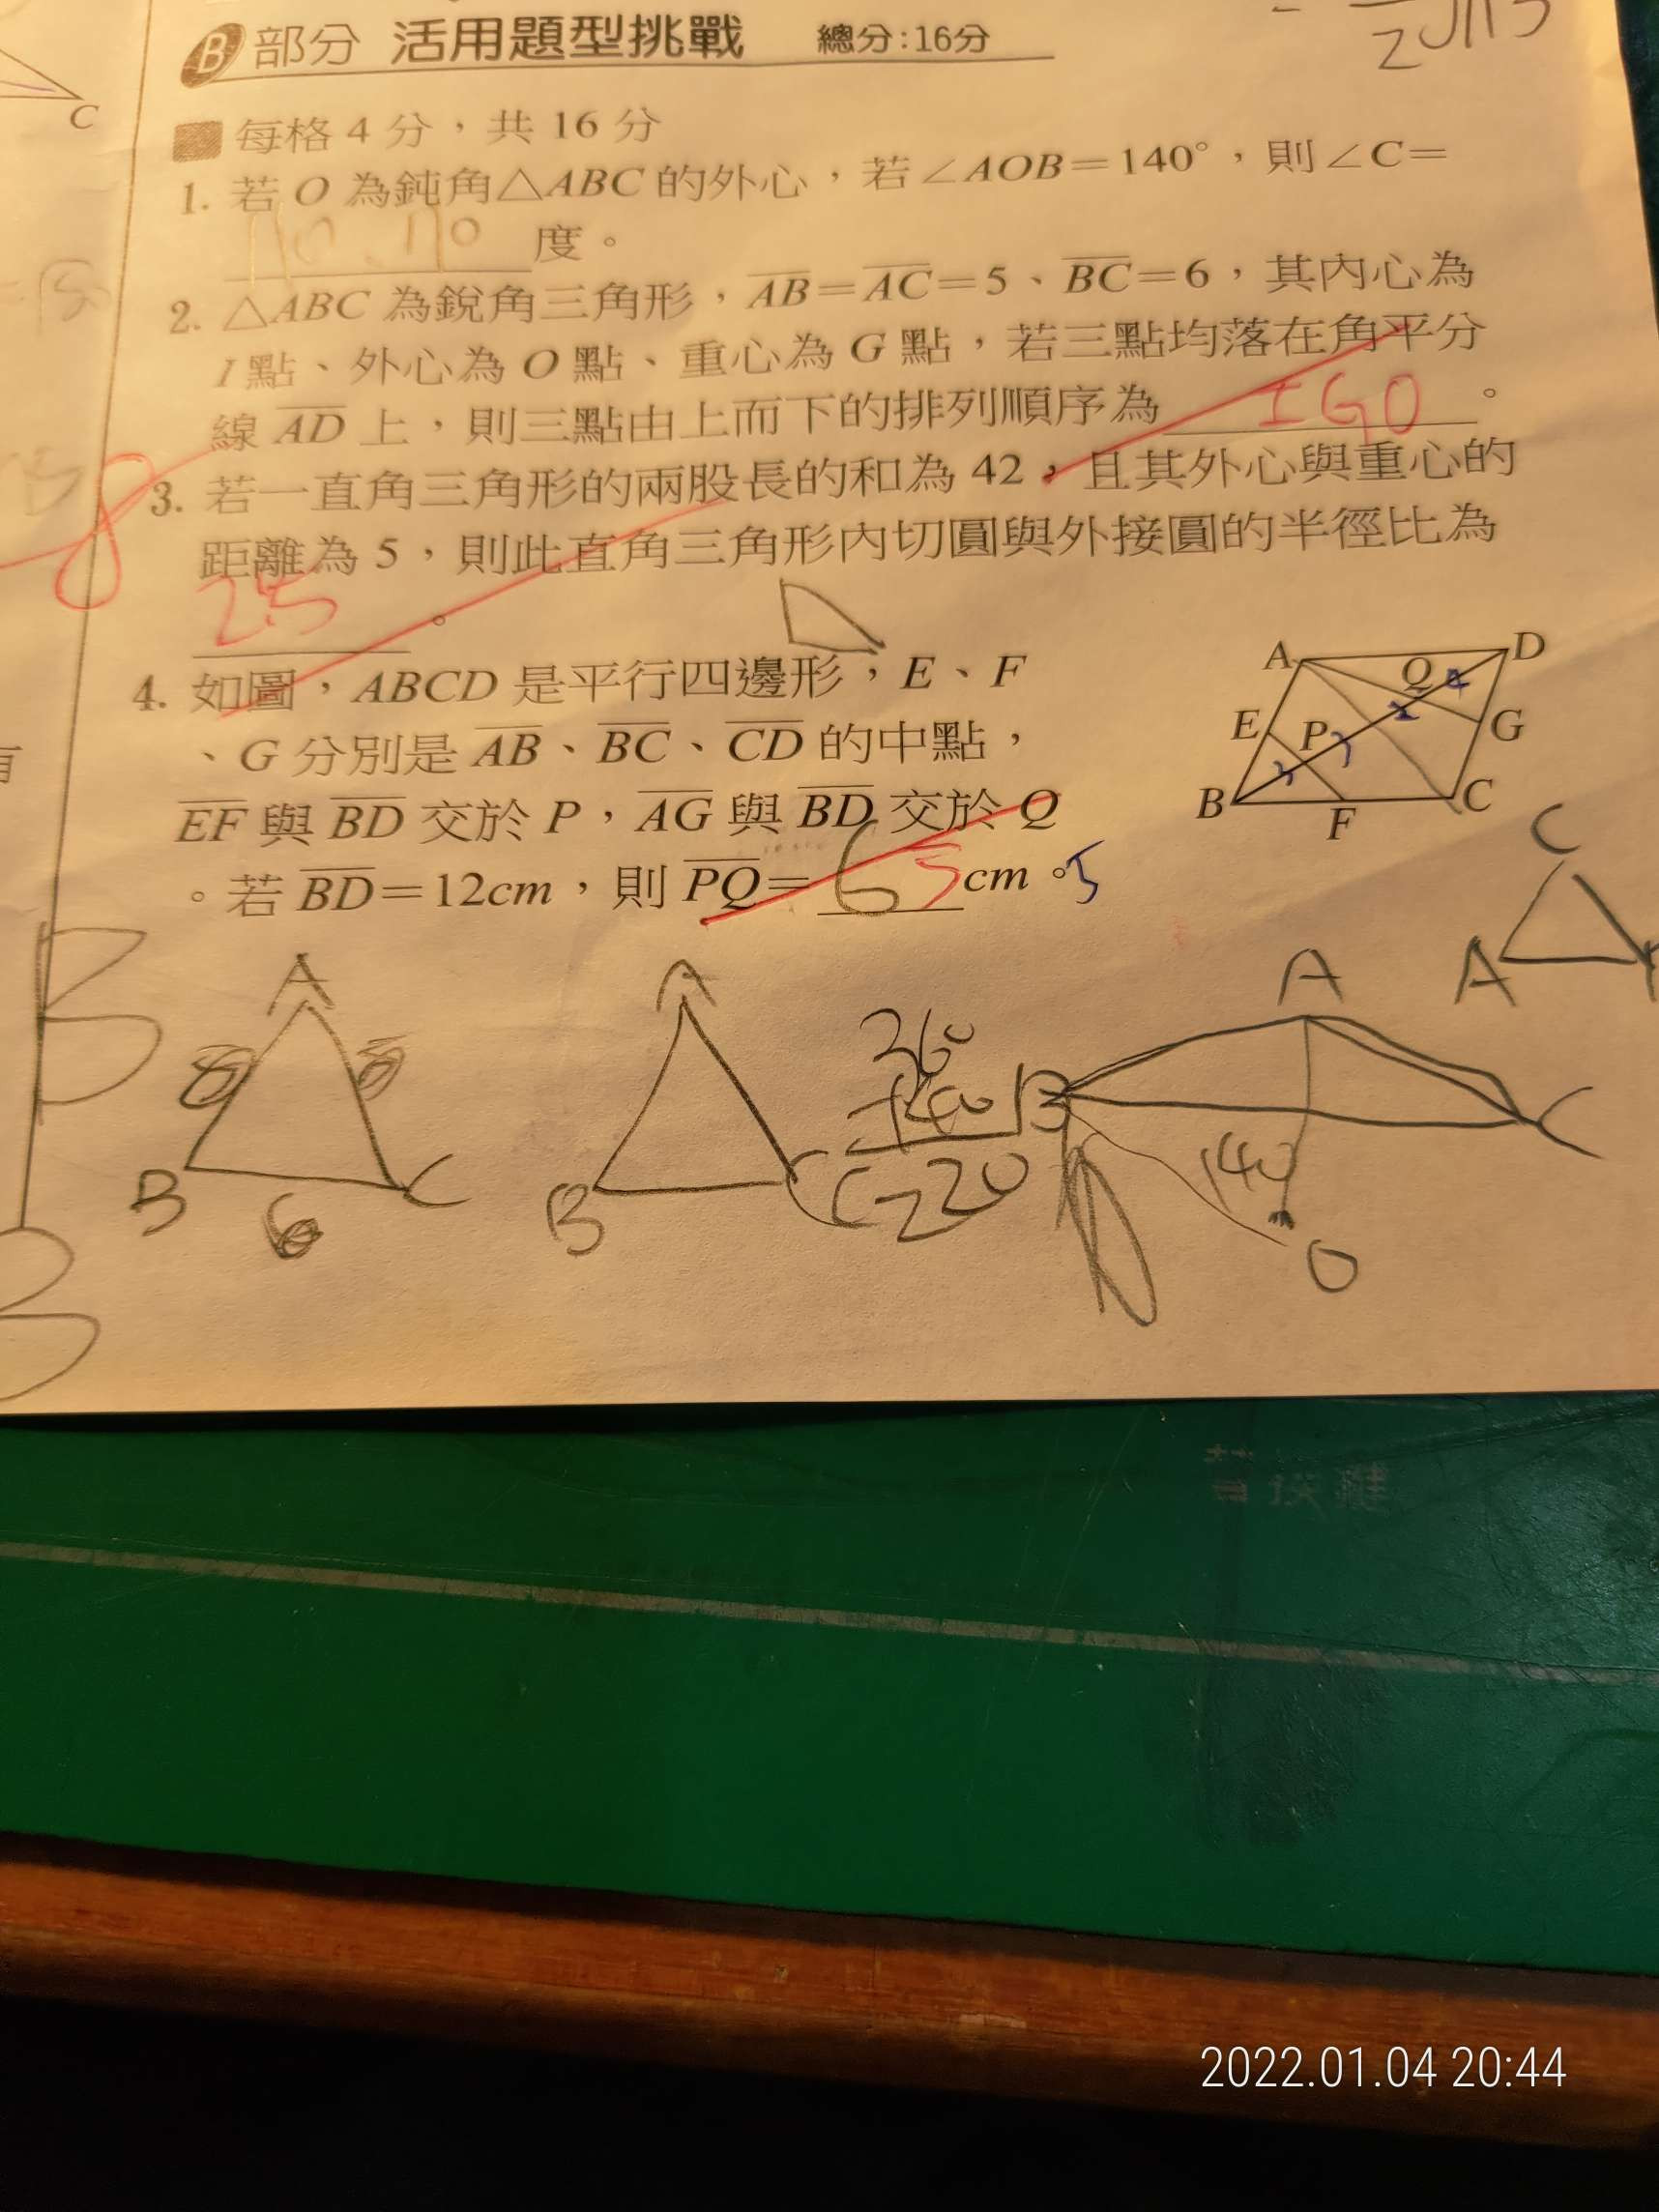 B 部分 活用題型挑戰 總分:16分
每格 4 分,共 16 分
1. 若 O 為鈍角△ABC 的外心,若∠AOB=140°,則∠C=
110 度。
2. △ABC 為銳角三角形,AB=AC=5、BC=6,其內心為
I 點、外心為 O 點、重心為 G 點,若三點均落在角平分
線 AD 上,則三點由上而下的排列順序為 IGO 。
3. 若一直角三角形的兩股長的和為 42,且其外心與重心的
距離為 5,則此直角三角形內切圓與外接圓的半徑比為
。
4. 如圖,ABCD 是平行四邊形,E、F
、G 分別是 AB、BC、CD 的中點,
EF 與 BD 交於 P,AG 與 BD 交於 Q
。若 BD=12cm,則 PQ= 6 5 cm。5
A Q D
E P G
B F C
C
A
A
B C
6
A
B C
360
140
220
A
B C
140
O
C
2022.01.04 20:44